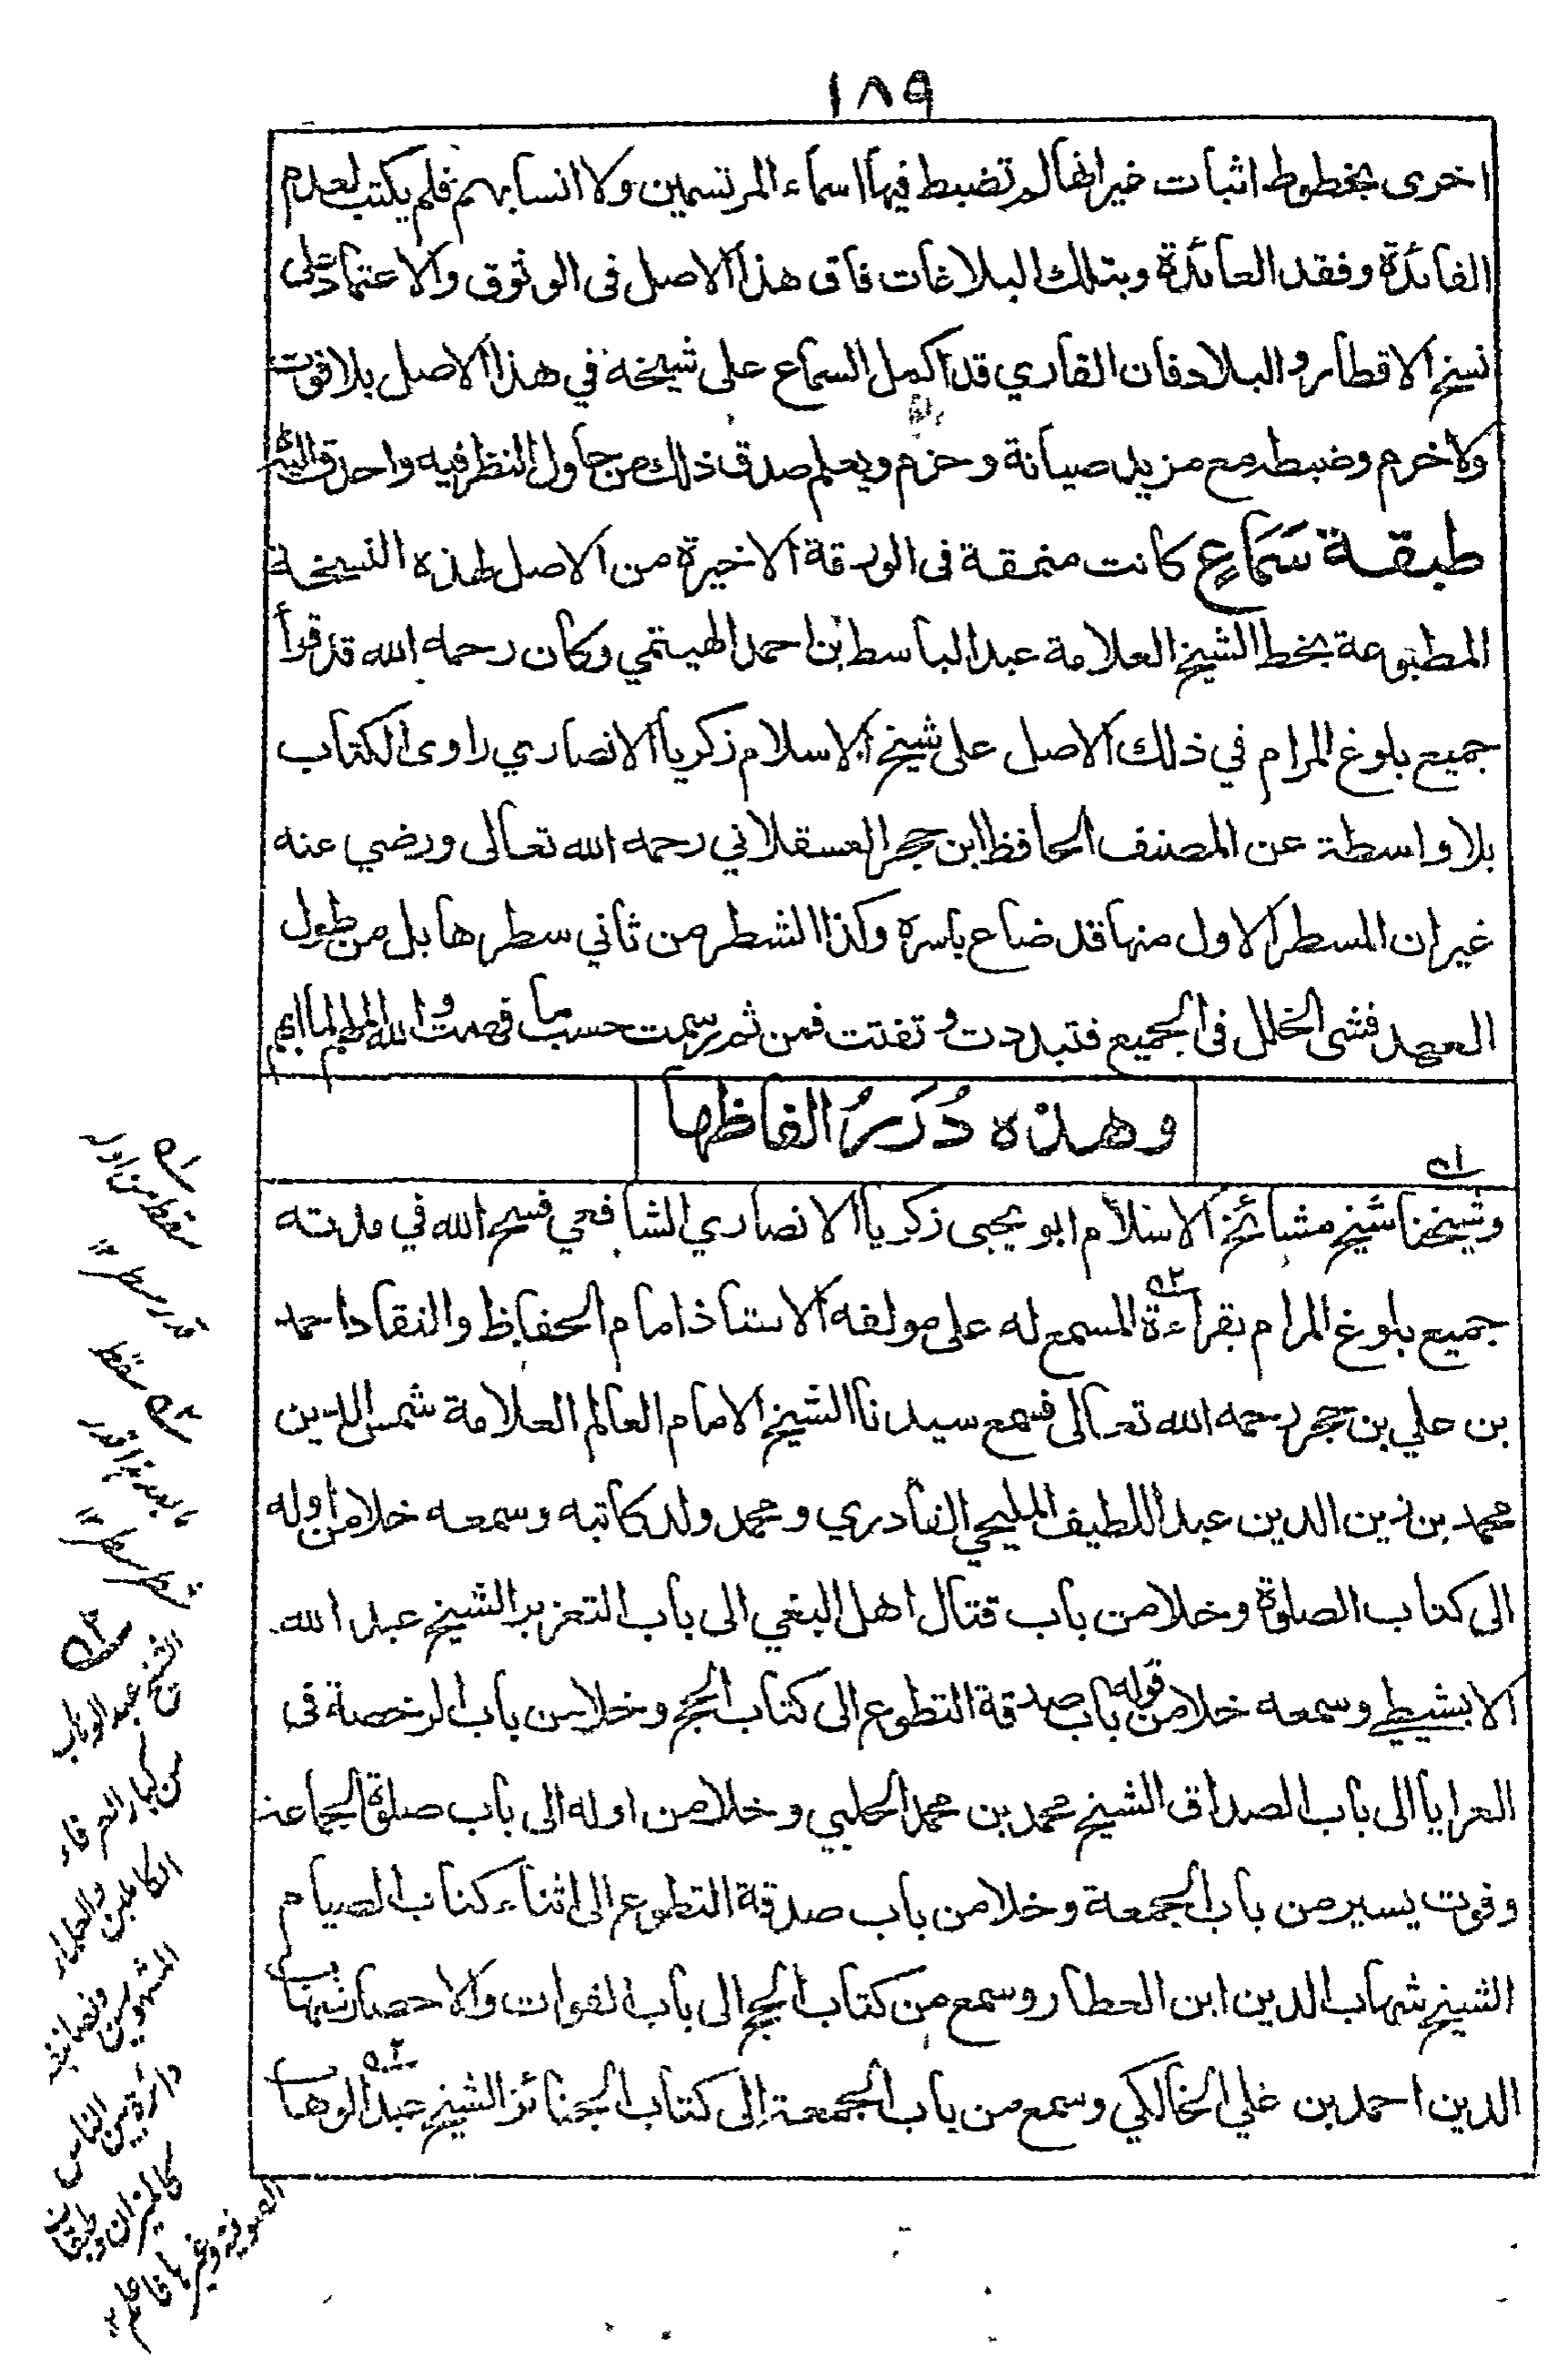 ١٨٩
اخرى بخطوط اثبات غير انها لم تضبط فيها اسماء المرتسمين ولا انسابهم فلم يكتب لعدم
الفائدة وفقد العائدة وبتلك البلاغات فاق هذا الاصل فى الوثوق والاعتماد على
نسخ الاقطار والبلاد فان القاري قد اكمل السماع على شيخه في هذا الاصل بلا فوت
ولا خرم وضبطه مع مزيد صيانة وحزم ويعلم صدق ذلك من حاول النظر فيه واحدق اليه
طبقة سَمَاعٍ كانت منمقة فى الورقة الاخيرة من الاصل لهذه النسخة
المطبوعة بخط الشيخ العلامة عبد الباسط بن احمد الهيتمي وكان رحمه الله قد قرأ
جميع بلوغ المرام في ذلك الاصل على شيخ الاسلام زكريا الانصاري راوى الكتاب
بلا واسطة عن المصنف الحافظ ابن حجر العسقلاني رحمه الله تعالى ورضي عنه
غير ان السطر الاول منها قد ضاع باسره وكذا الشطر من ثاني سطرها بل من طول
العهد فشى الخلل فى الجميع فتبددت و تفتت فمن ثم رسمت حسب ما فهمت والله الملهم لما ابهم
وهذه دُرَرُ الفاظها
وشيخنا شيخ مشائخ الاسلام ابو يحيى زكريا الانصاري الشافعي فسح الله في مدته
جميع بلوغ المرام بقراءة المسمع له على مولفه الاستاذ امام الحفاظ والنقاد احمد
بن علي بن حجر رحمه الله تعالى فسمع سيدنا الشيخ الامام العالم العلامة شمس الدين
محمد بن زين الدين عبد اللطيف المليجي القادري و محمد ولد كاتبه وسمعه خلا من اوله
الى كتاب الصلوة وخلا من باب قتال اهل البغي الى باب التعزير الشيخ عبد الله
الابشيطي وسمعه خلا من قوله باب صدقة التطوع الى كتاب الحج وخلا من باب الرخصة فى
العرايا الى باب الصداق الشيخ محمد بن محمد الحلبي وخلا من اوله الى باب صلوة الجماعة
وفوت يسير من باب الجمعة وخلا من باب صدقة التطوع الى اثناء كتاب الصيام
الشيخ شهاب الدين ابن العطار وسمع من كتاب الحج الى باب الفوات والاحصار شهاب
الدين احمد بن علي الخالكي وسمع من باب الجمعة الى كتاب الجنائز الشيخ عبد الوهاب
سقط من اوله
قدر سطر
سقط
قدر
شطر سطر
الشيخ عبد الوهاب
من كبار العرفاء
الكاملين والعلماء
المشهورين وتصانيفه
دائرة بين الناس
كالميزان وطبقات
الصوفية وغيرها فاعلم